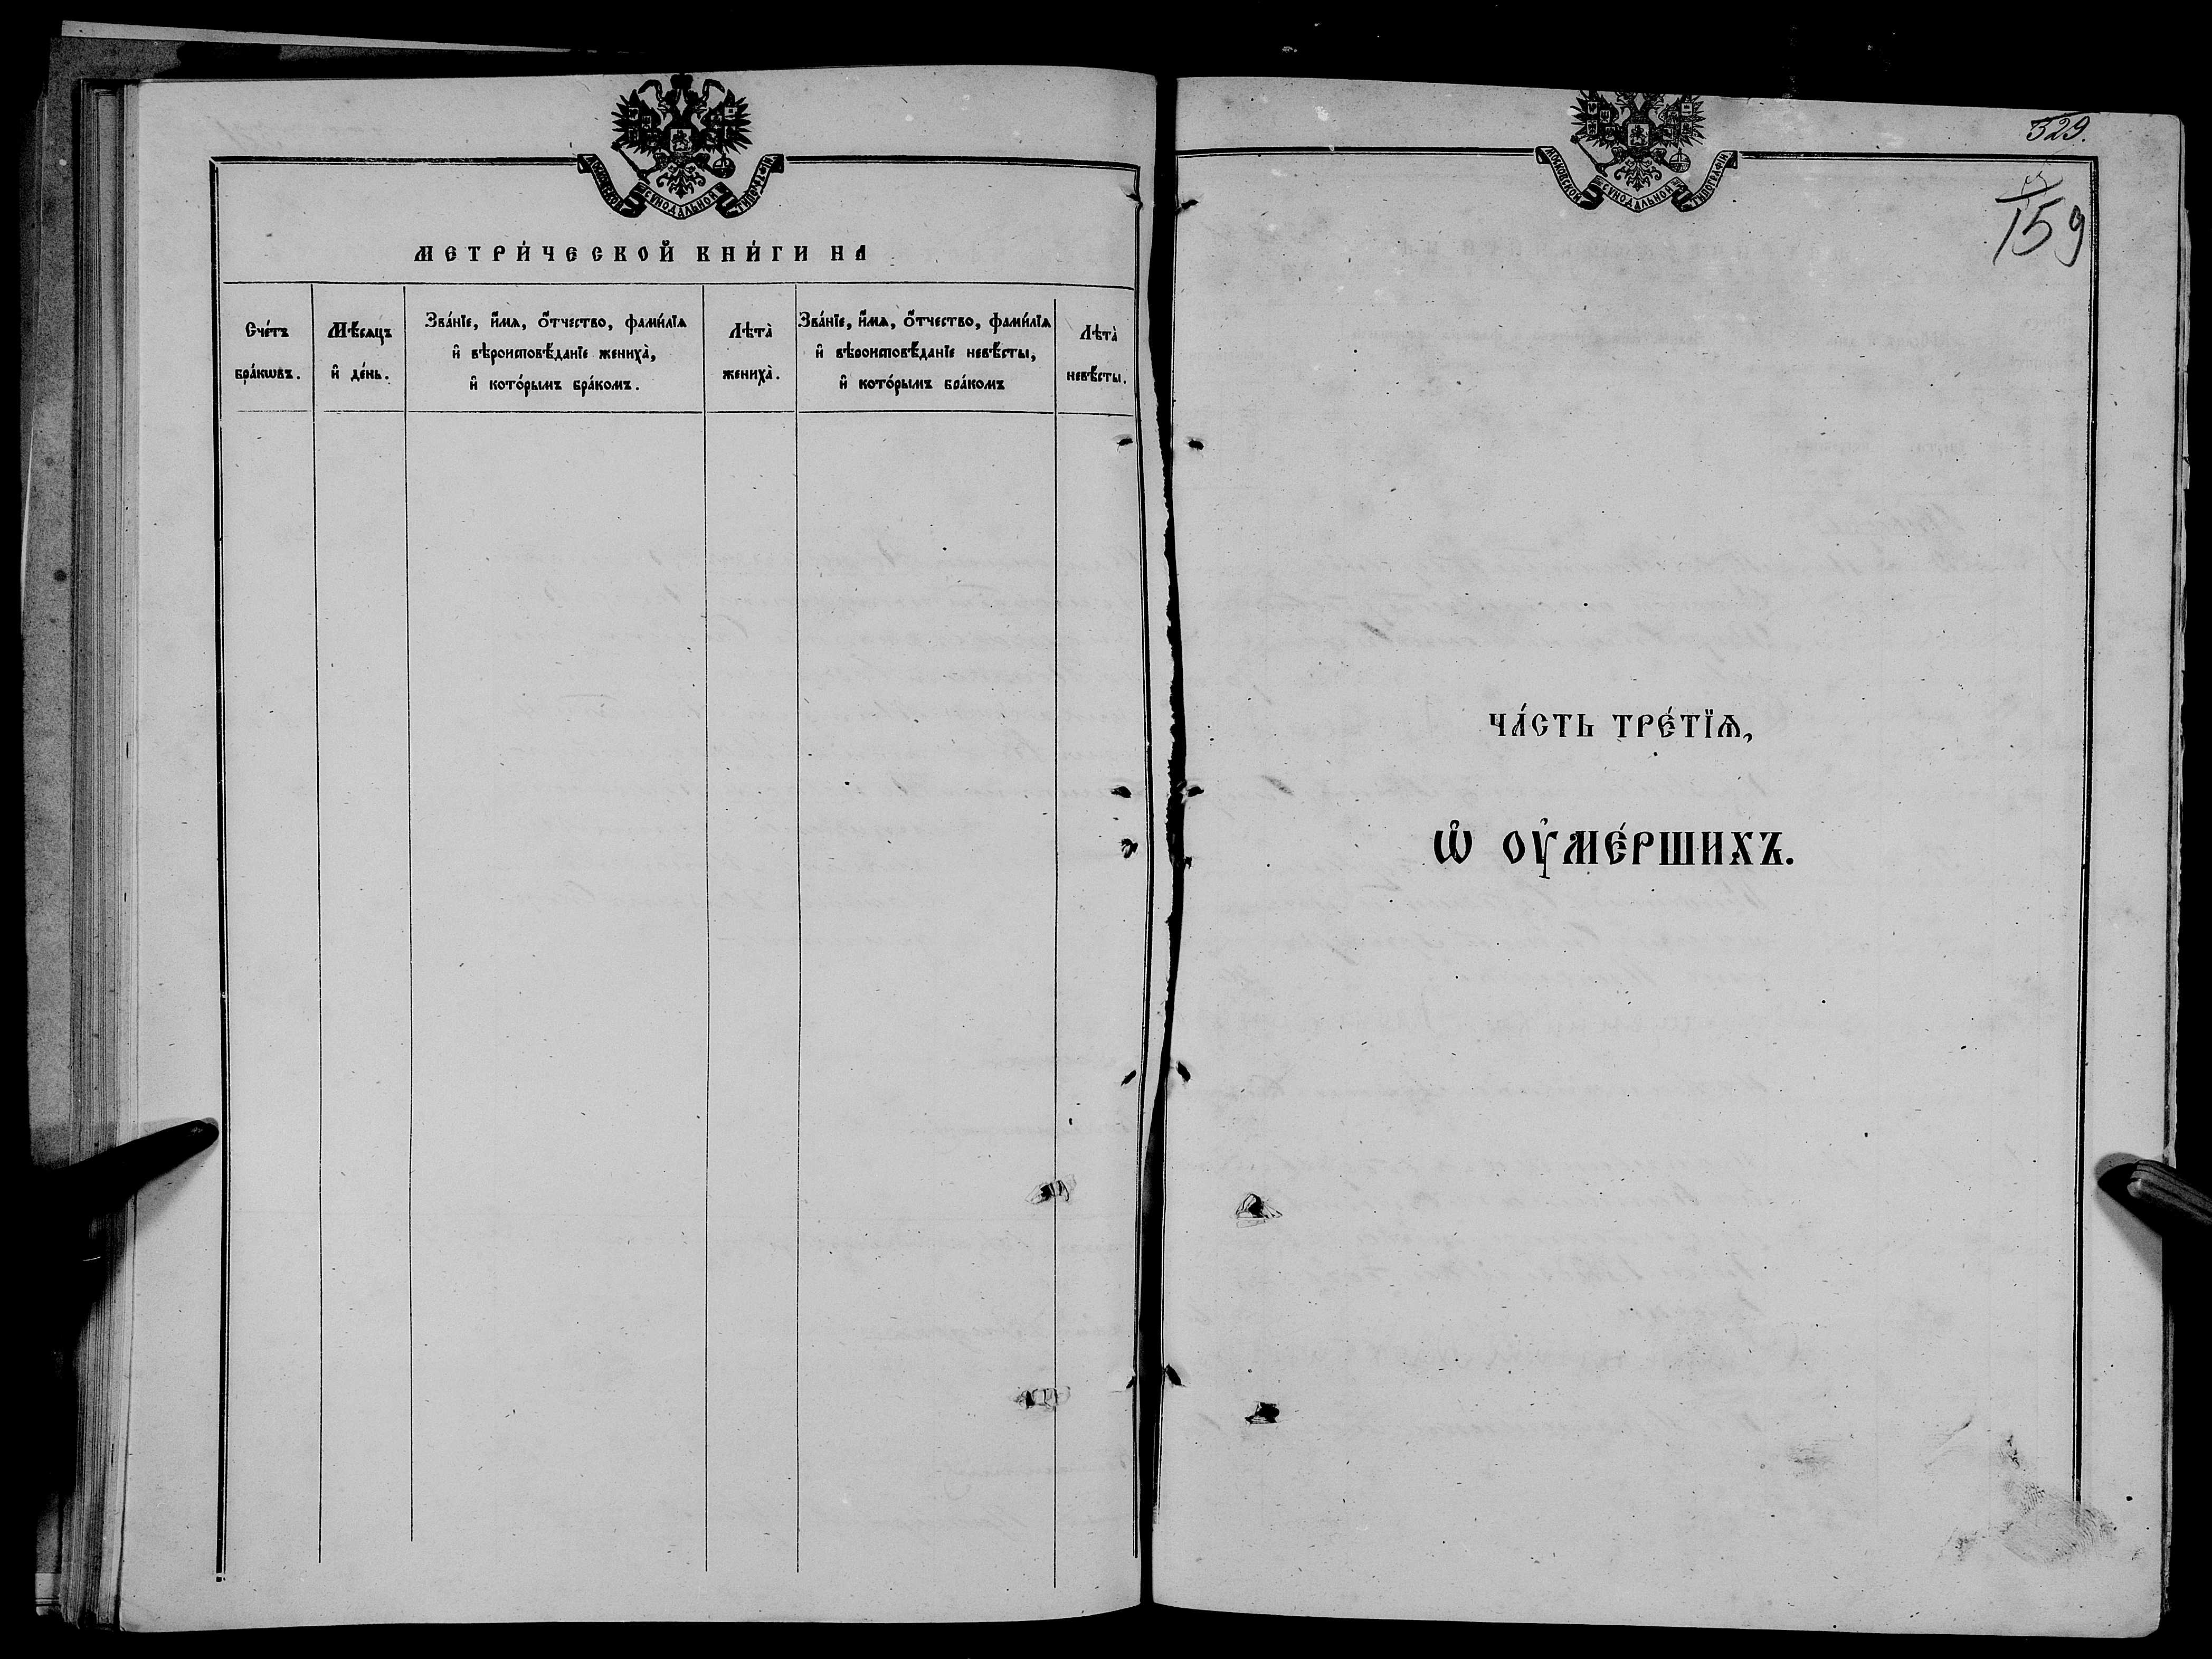 МОСКОВСКОЙ СѴНОДАЛЬНОЙ ТИПОГРАФІИ
МЕТРИ́ЧЕСКОЙ КНИ́ГИ НА
Сче́тъ
бра́кѡвъ.
Мѣ́сяцъ
и҆ де́нь.
Зва́нїе, и҆́мѧ, ѻ҆́тчество, фами́лїѧ
и҆ вѣроисповѣ́данїе жениха̀,
и҆ кото́рымъ бра́комъ.
Лѣта̀
жениха̀.
Зва́нїе, и҆́мѧ, ѻ҆́тчество, фами́лїѧ
и҆ вѣроисповѣ́данїе невѣ́сты,
и҆ кото́рымъ бра́комъ
Лѣта̀
невѣ́сты.
МОСКОВСКОЙ СѴНОДАЛЬНОЙ ТИПОГРАФІИ
329.
159
ЧА́СТЬ ТРЕ́ТЇѦ,
Ѡ҆ ОУ҆МЕ́РШИХЪ.